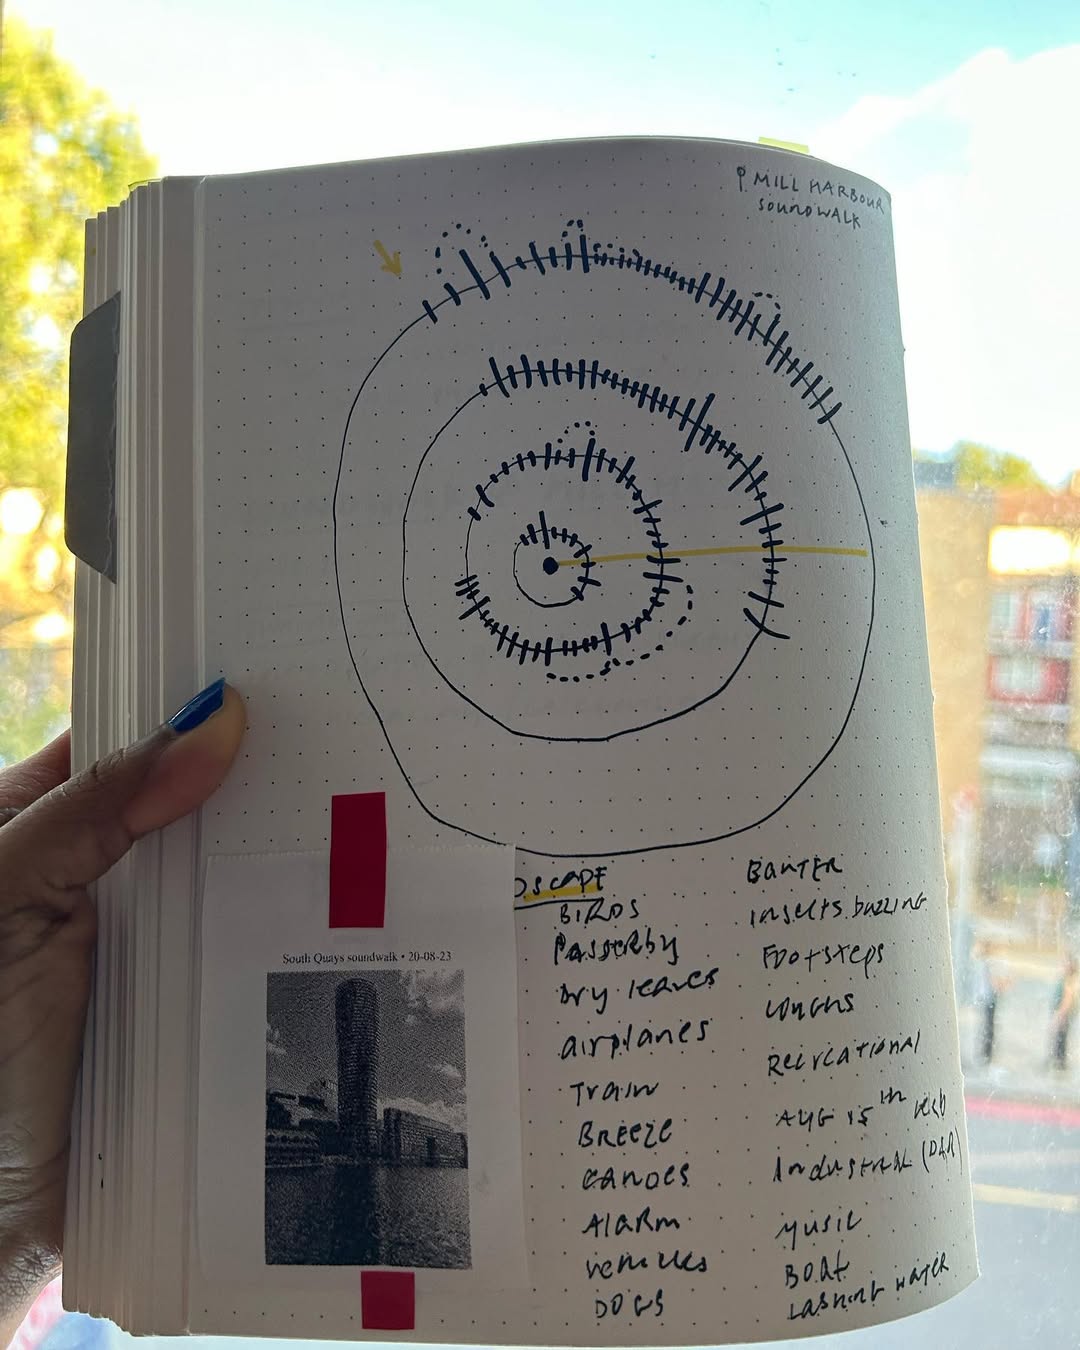 MILL HARBOUR
SOUNDWALK
South Quays soundwalk • 20-08-23
DSCAPE
BIRDS
Passerby
Dry leaves
airplanes
Train
BREEZE
canoes
Alarm
vehicles
DOGS
BANTER
insects buzzing
Footsteps
coughs
Recreational
AUG 15th
Industrial
MUSIC
Boat
Lashing water